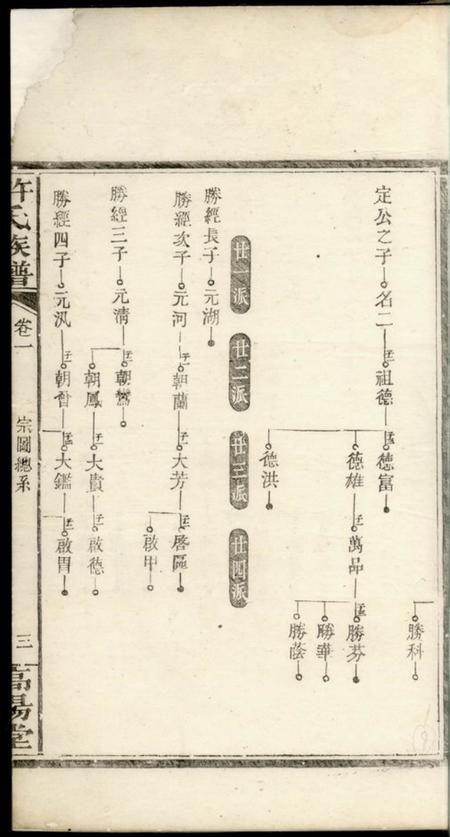 勝科
定公之子 名二 子 祖德 德富
德雄 子 萬品 勝芬
勝華
勝蔭
德洪
廿一派 廿二派 廿三派 廿四派
勝經長子 元湖
勝經次子 元河 子 朝蘭 子 大芳 子
啟甲
勝經三子 元清 子 朝鸞
朝鳳 子 大貴 子 啟德
勝經四子 元汎 子 朝 子 大鑑 子 啟胃
許氏族譜 卷一 宗圖總系 三 高陽堂